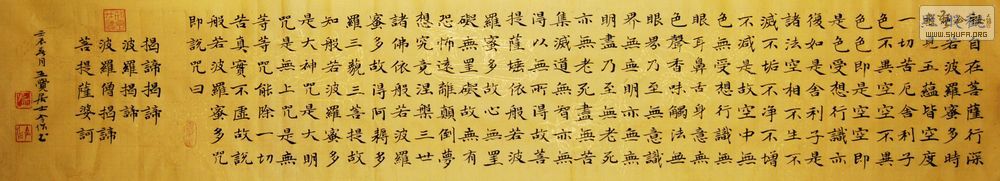 自在菩薩行深
若波羅蜜多時
見五蘊皆空度
一切苦厄舍利子
色不異空空不異
色色即是空空即
是色受想行識亦
復如是舍利子是
諸法空相不生不
滅不垢不淨不增
不減是故空中無
色無受想行識無
眼耳鼻舌身意無
色聲香味觸法無
眼界乃至無意識
界無無明亦無無
明盡乃至無老死
亦無老死盡無苦
集滅道無智亦無
得以無所得故菩
提薩埵依般若波
羅蜜多故心無罣
礙無罣礙故無有
恐怖遠離顛倒夢
想究竟涅槃三世
諸佛依般若波羅
蜜多故得阿耨多
羅三藐三菩提故
知般若波羅蜜多
是大神咒是大明
咒是無上咒是無
等等咒能除一切
苦真實不虛故說
般若波羅蜜多咒
即說咒曰
揭諦揭諦
波羅揭諦
波羅僧揭諦
菩提薩婆訶
WWW.SHUFA.ORG